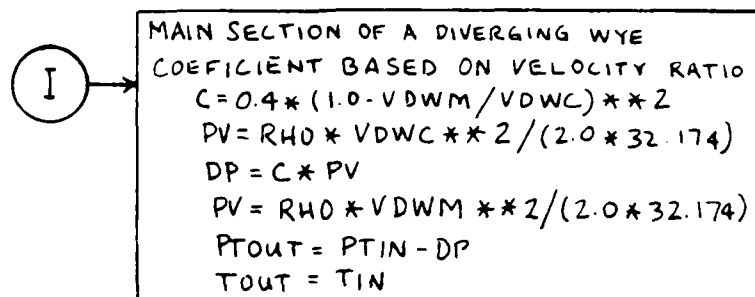 I
MAIN SECTION OF A DIVERGING WYE
COEFICIENT BASED ON VELOCITY RATIO
C=0.4*(1.0-VDWM/VDWC)**2
PV=RHO*VDWC**2/(2.0*32.174)
DP=C*PV
PV=RHO*VDWM**2/(2.0*32.174)
PTOUT=PTIN-DP
TOUT=TIN